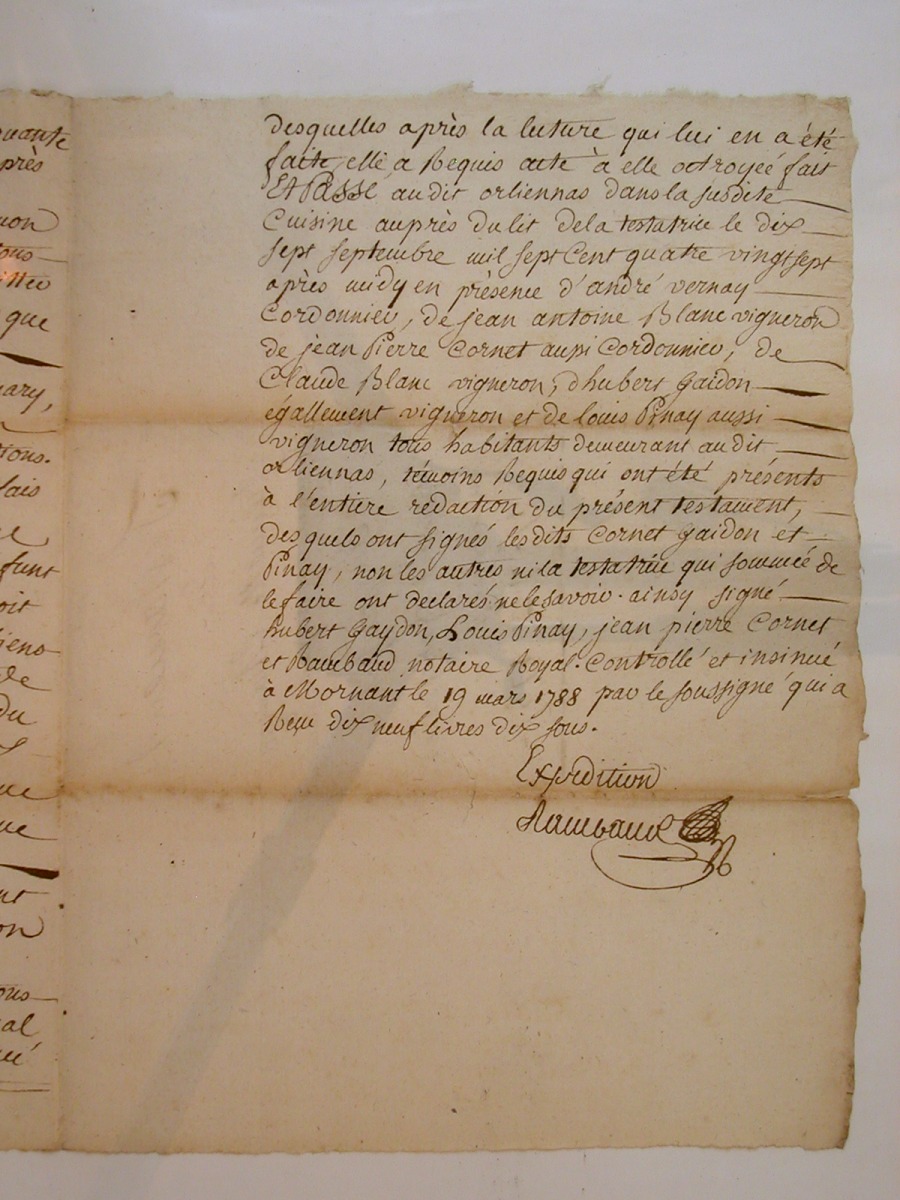 uante
près
non
tous
ittée
que
mary,
tions.
lais
funt
oit
liens
de
du
ue
ne
nt
on
ous
al
ué
desquelles après la lecture qui lui en a été
faite, elle a Requis acte à elle octroyeé fait
Et Passé audit orliennas dans la susdite
Cuisine auprès du lit de la testatrice le dix
sept septembre mil sept Cent quatre vingt sept
après midy en présence d'andré vernay
Cordonnier, de jean antoine Blanc vigneron
de jean Pierre Cornet aussi Cordonnier, de
Claude Blanc vigneron, d'hubert gaidon
égallement vigneron et de louis Pinay aussi
vigneron tous habitants demeurant au dit
orliennas, témoins Requis qui ont été présents
à l'entiere redaction du présent testament,
desquels ont signés lesdits Cornet gaidon et
Pinay, non les autres ni la testatrice qui sommeé de
le faire ont declarés ne le savoir. ainsy signé
hubert Gaydon, Louis Pinay, jean pierre Cornet
et Rambaud notaire Royal. Controllé et insinué
à Mornant le 19 mars 1788 par le soussigné qui a
Reçu dix neuf livres dix sous.
Expedition
Rambaud